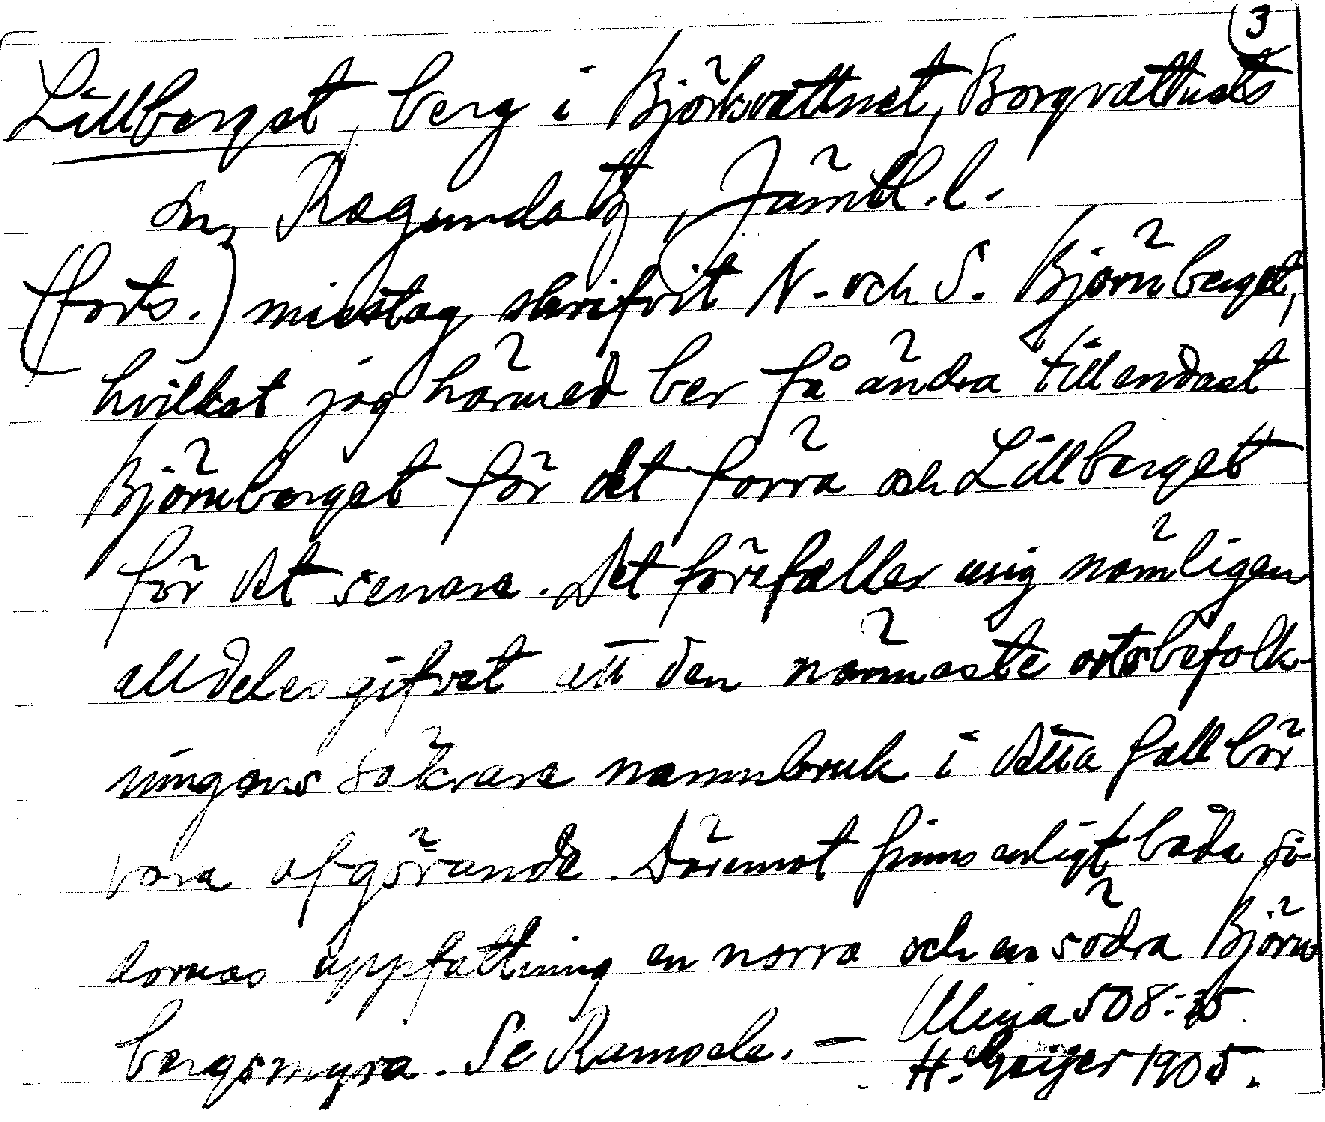 3
Lillberget, berg i Björkvattnet, Borgvattnets
sn, Ragunda tg, Jämtl. l.
(forts.) misstag skrifvit N. och S. Björnberget,
hvilket jag härmed ber få ändra till endast
Björnberget för det förra och Lillberget
för det senare. Det förefaller mig nämligen
alldeles gifvet att den närmaste ortsbefolk-
ningens säkrare namnbruk i detta fall bör
vara afgörande. Däremot finns enligt båda si-
dornas uppfattning en norra och en södra Björn
bergsmyra. Se Ramsele. –
H. Geijer 1905.